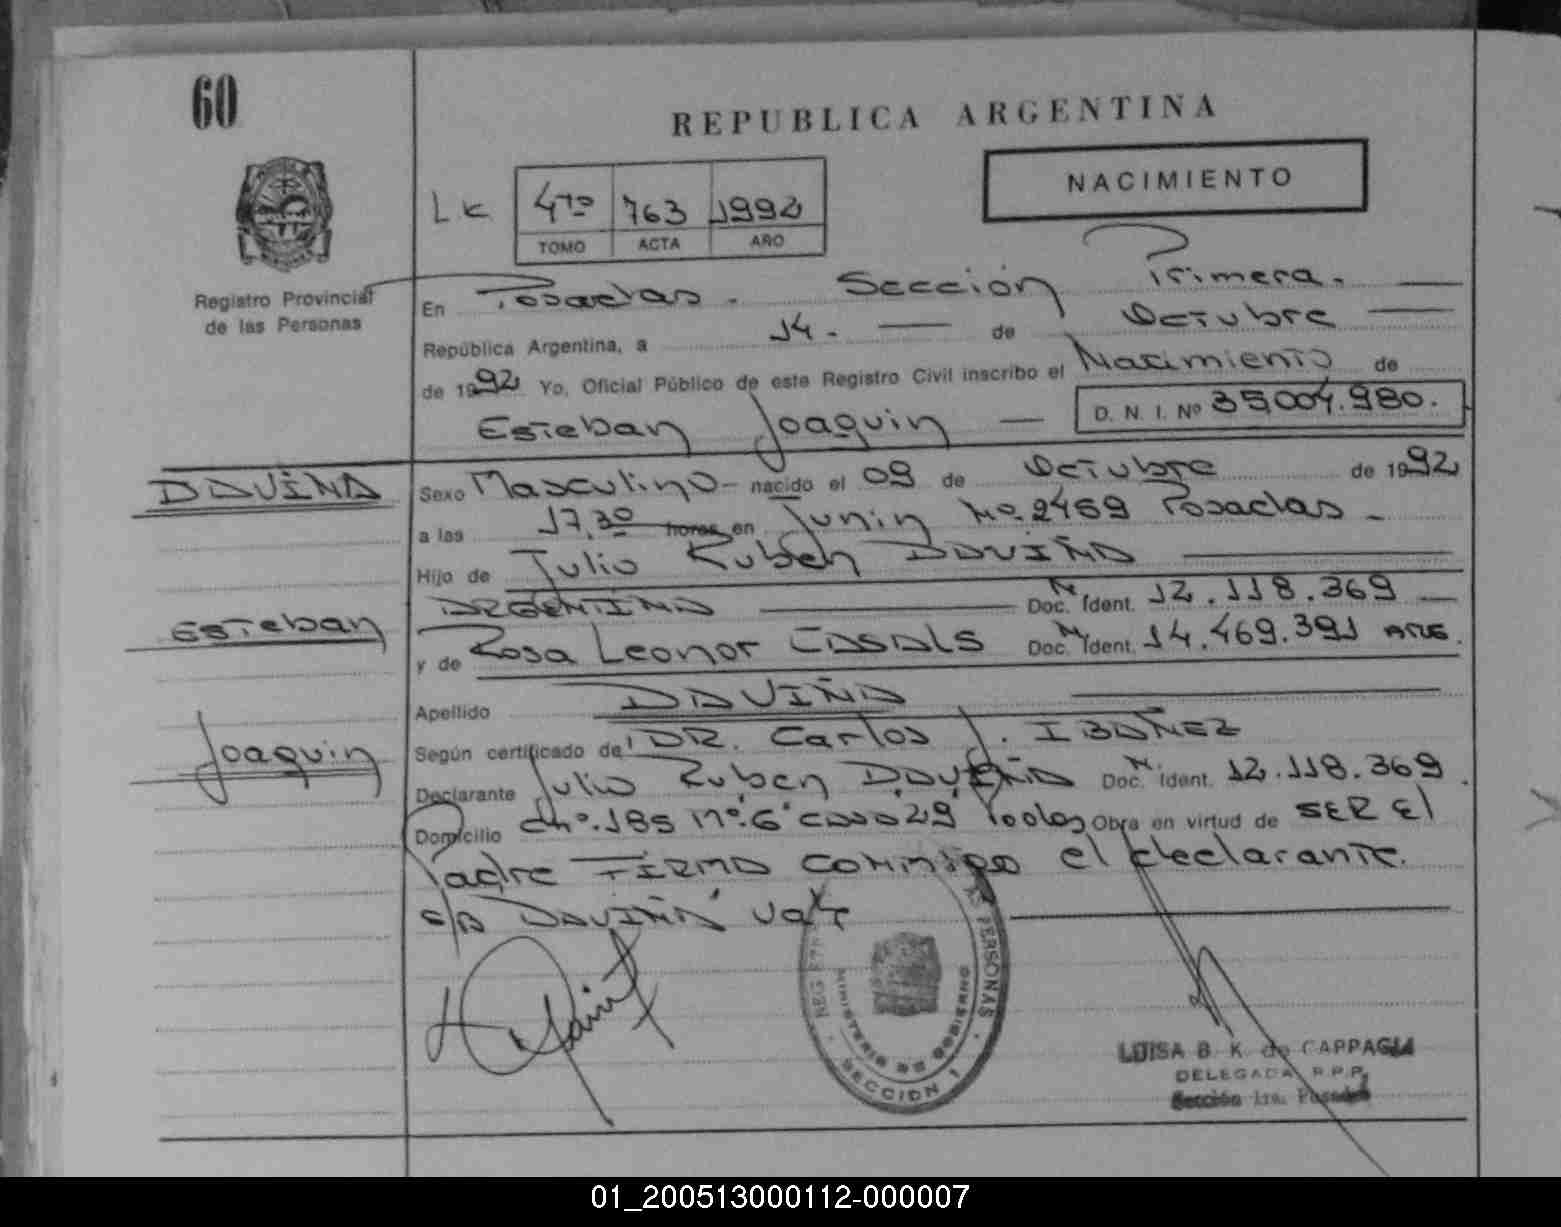 60
REPUBLICA ARGENTINA
NACIMIENTO
LK 4to 763 1992
TOMO ACTA AÑO
Registro Provincial
de las Personas
En Posadas. Sección Primera.
República Argentina, a 14. de Octubre
de 1992 Yo, Oficial Público de este Registro Civil inscribo el Nacimiento de
Esteban Joaquin D. N. I. Nº 35,004.980.
DAVIÑA
Sexo Masculino nacido el 09 de Octubre de 1992
a las 17,30 horas en Junin No. 2469 Posadas
Hijo de Julio Ruben DAVIÑA
ARGENTINA Doc. Ident. 12.118.369
Esteban
y de Rosa Leonor CASALS Doc. Ident. 14.469.391 ARG.
Apellido DAVIÑA
Joaquin
Según certificado de DR. Carlos J. IBAÑEZ
Declarante Julio Ruben DAVIÑA Doc. Ident. 12.118.369.
Domicilio Chº. 185 nº 6 casa 29 Obra en virtud de SER El
Padre FIRMA conmigo el declarante.
e/a DAVIÑA vale
REG PERSONAS
MINISTERIO DE GOBIERNO
SECCION 1
LUISA B. K. de CAPPAGLI
DELEGADA R.P.P.
Sección 1ra. Posadas
01_200513000112-000007